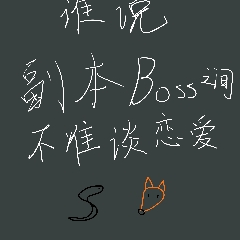 谁说
副本Boss之间
不准谈恋爱
S